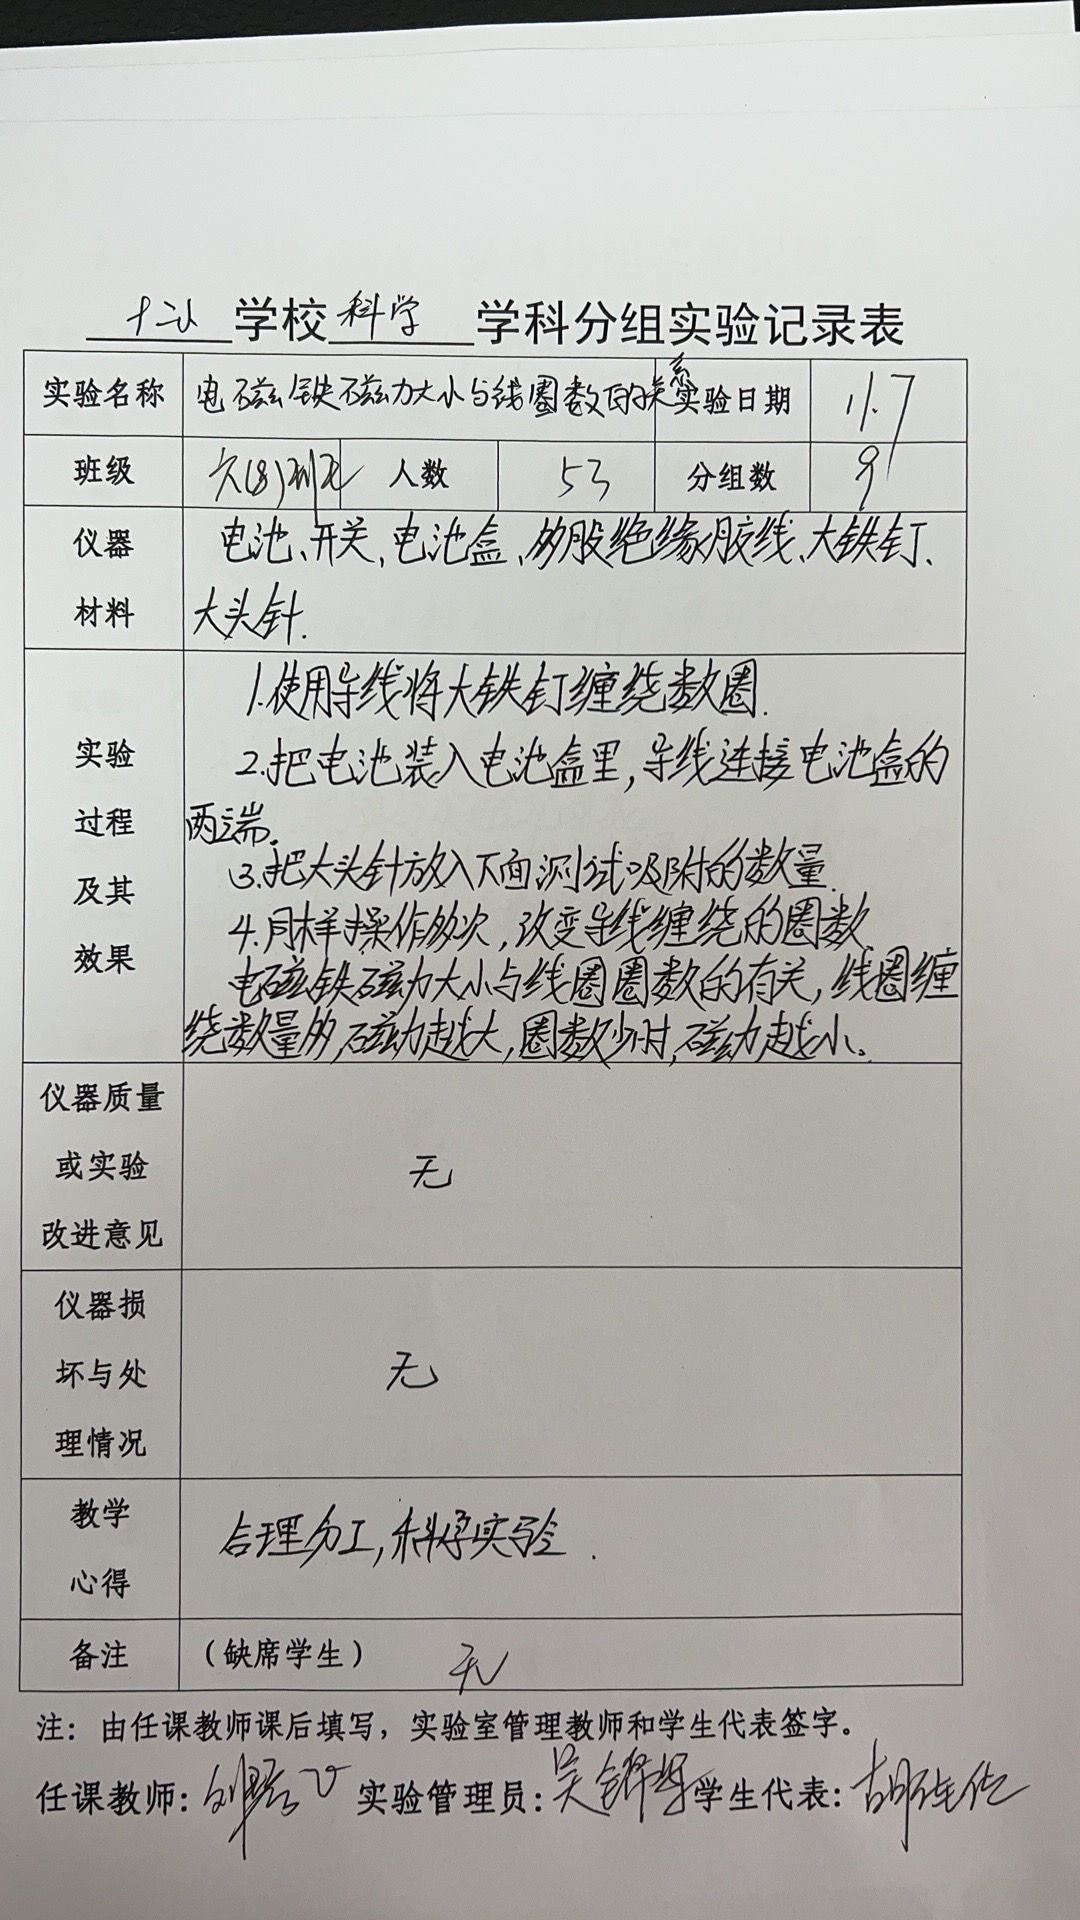 十二小学校科学学科分组实验记录表
实验名称 电磁铁磁力大小与线圈数的关系 实验日期 11.7
班级 六(8) 人数 53 分组数 9
仪器 电池、开关,电池盒、多股绝缘胶线、大铁钉、
材料 大头针.
1.使用导线将大铁钉缠绕数圈.
实验 2.把电池装入电池盒里,导线连接电池盒的
过程 两端。
及其 3.把大头针放入下面测试吸附的数量.
效果 4.同样操作多次,改变导线缠绕的圈数.
电磁铁磁力大小与线圈圈数的有关,线圈缠
绕数量多,磁力越大,圈数少时,磁力越小。
仪器质量
或实验 无
改进意见
仪器损
坏与处 无
理情况
教学 合理分工,科学实验.
心得
备注 (缺席学生) 无
注:由任课教师课后填写,实验室管理教师和学生代表签字。
任课教师: 实验管理员: 学生代表: